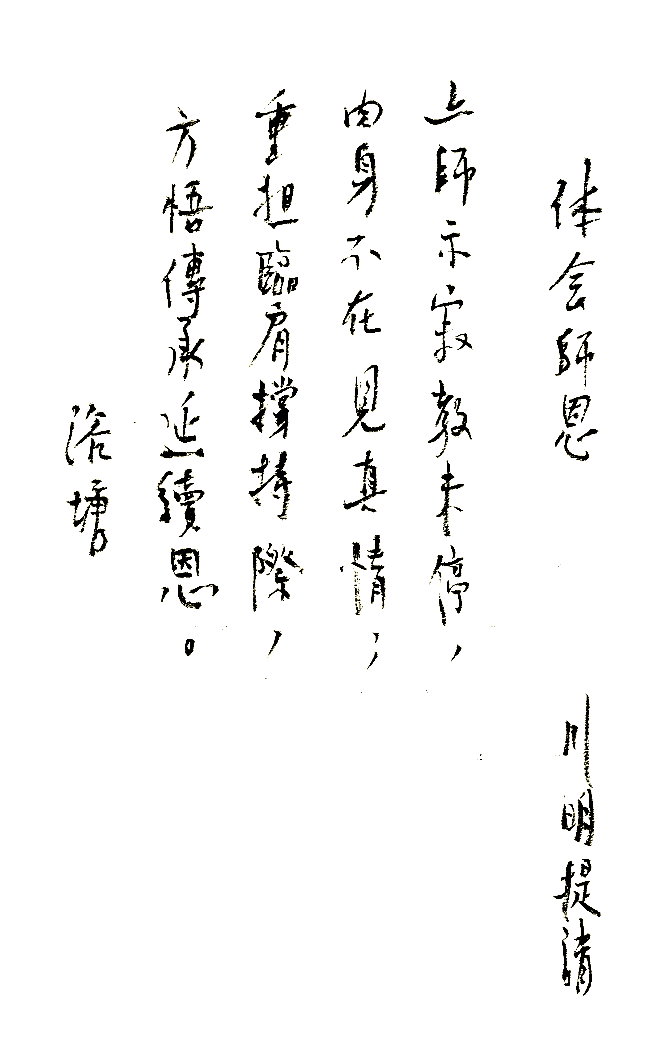 体会師恩 川明提請
上師示寂教未停，
肉身不在見真情；
重担臨肩撐持際，
方悟傳承延續恩。
塘